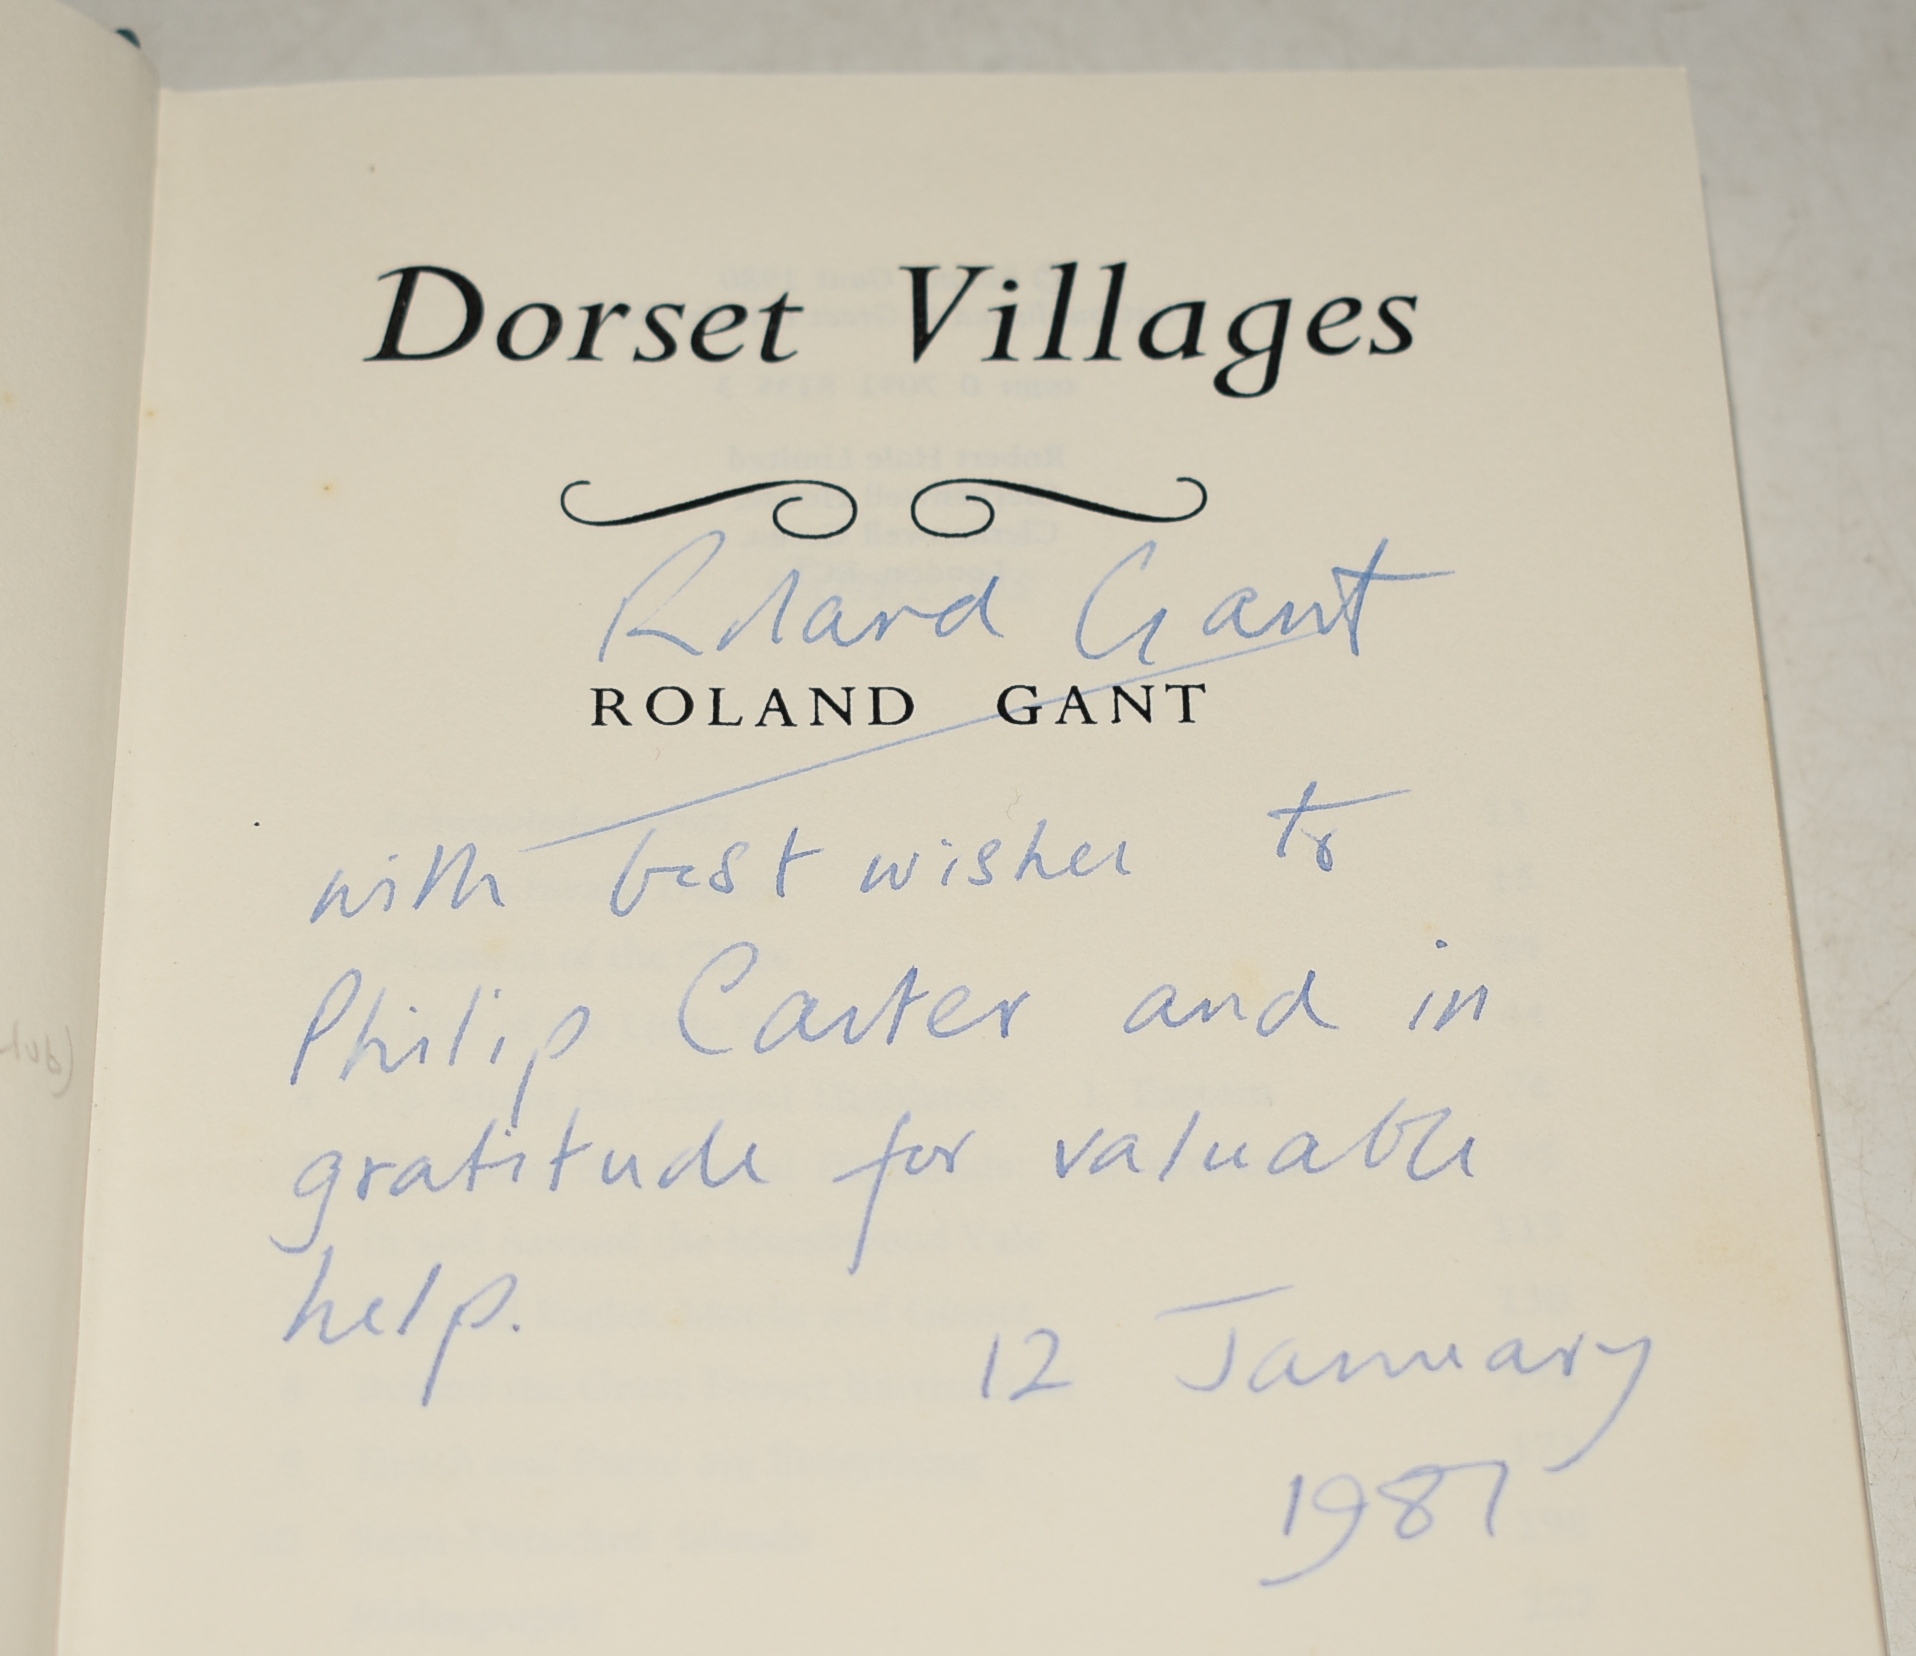 Dorset Villages
Roland Gant
ROLAND GANT
with best wishes to
Philip Carter and in
gratitude for valuable
help.
12 January
1981